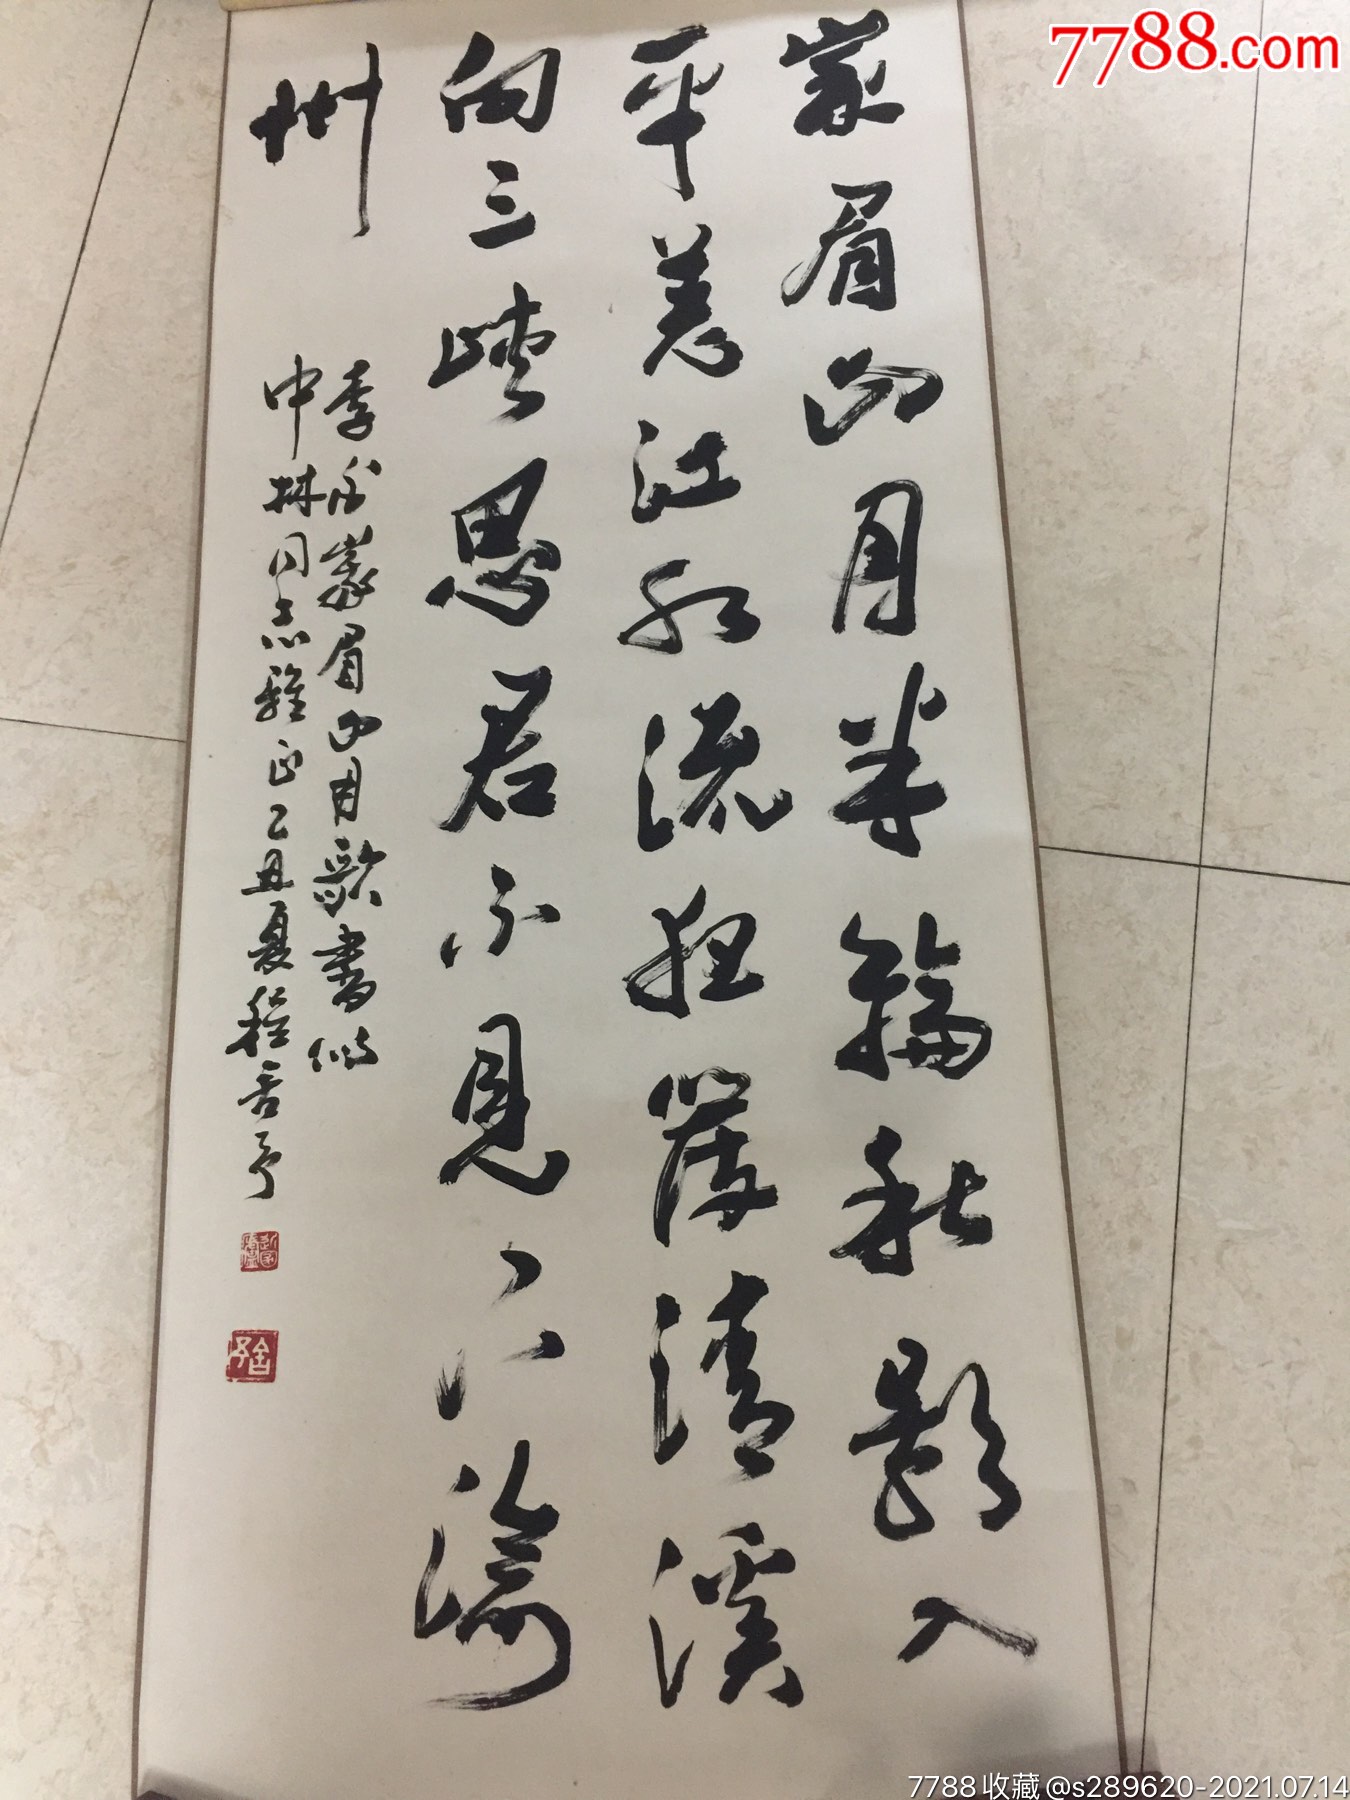 7788.com
峩眉山月半輪秋影入
平羌江水流夜發清溪
向三峽思君不見下渝
州
李白峩眉山月歌書似
中林同志雅正乙丑夏程舍予
舍予
7788收藏@s289620-2021.07.14